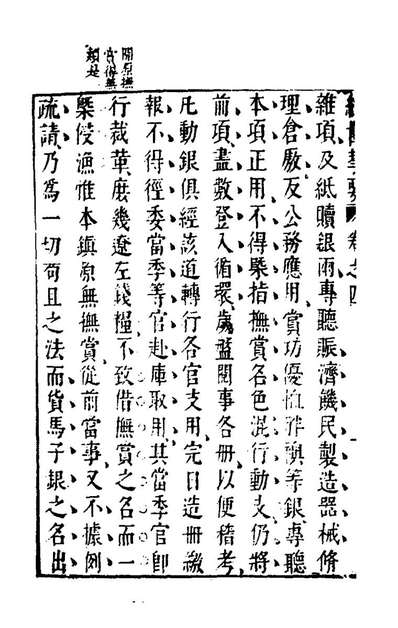 卷之四
雜項及紙贖銀兩專聽賑濟饑民製造器械脩
理倉厫及公務應用賞功優恤等銀專聽
本項正用不得槩指撫賞名色混行動支仍將
前項盡數登入循環歲閱事各冊以便稽考
凡動銀俱經該道轉行各官支用完日造冊繳
報不得徑委當季等官赴庫取用其當季官卽
行裁革庶幾遼左錢糧不致借撫賞之名而一
槩侵漁惟本鎮原無撫賞從前當事又不據例
疏請乃爲一切苟且之法而貨馬子銀之名出
開原撫
賞得無
類是